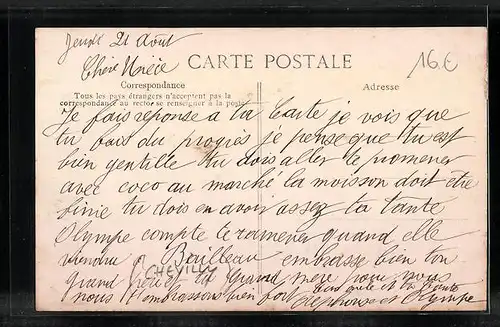 Jeudi 21 Août
Chère Nièce
CARTE POSTALE
16 €
Correspondance
Adresse
Tous les pays étrangers n'acceptent pas la
correspondance au recto se renseigner à la poste
Je fais réponse a ta Carte je vois que
tu fais du progrès je pense que tu est
bien gentille tu dois aller te promener
avec coco au marché la moisson doit être
finie tu dois en avoir assez ta tante
Olympe compte te ramener quand elle
viendra a Bailleau embrasse bien ton
grand père et ta Grand mère pour nous
CHEVILLY
nous t'embrassons bien fort ton oncle et ta tante
Alphonse et Olympe